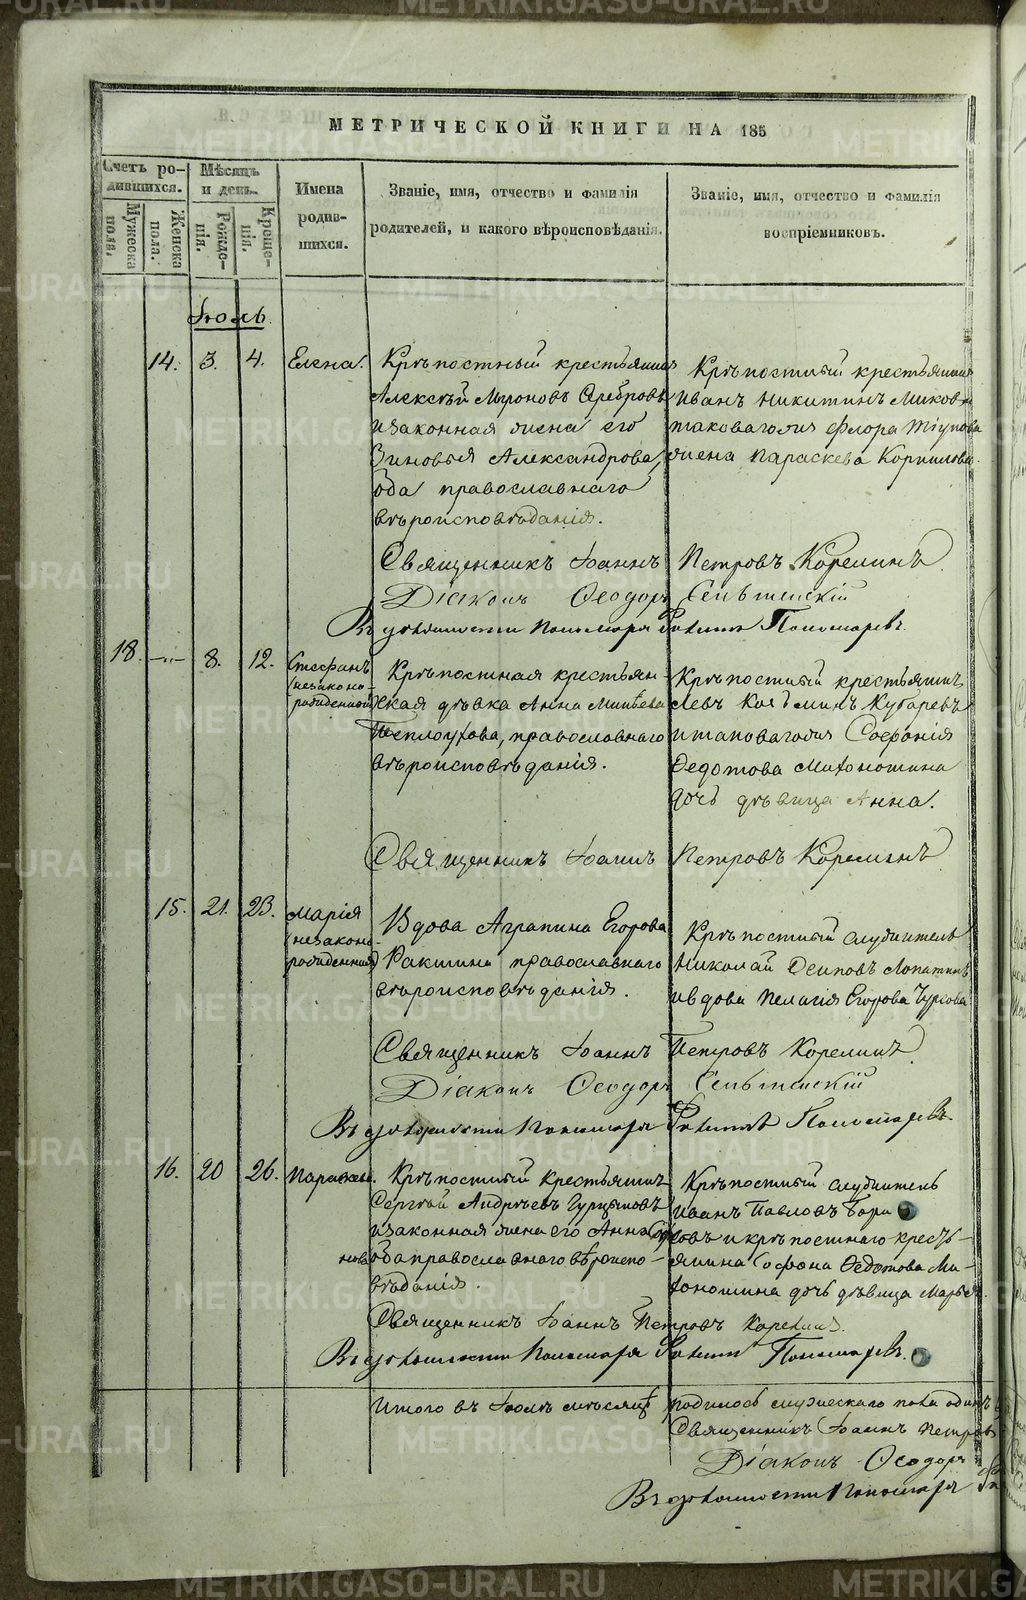 МЕТРИЧЕСКОЙ КНИГИ НА 185
Счетъ ро-
дившихся.
Мѣсяцъ
и день.
Имена
родив-
шихся.
Званіе, имя, отчество и фамилія
родителей, и какого вѣроисповѣданія.
Званіе, имя, отчество и фамилія
воспріемниковъ.
Мужеска
пола.
Женска
пола.
Рожде-
нія.
Креще-
нія.
Іюль.
14. 3. 4. Елена.
Крѣпостный крестьянинъ
Алексѣй Мироновъ Серебровъ
и законная жена его
Зиновья Александрова,
оба православнаго
вѣроисповѣданія.
Крѣпостный крестьянинъ
Иванъ Никитинъ
таковагожъ Флора
жена Параскева Корнилова.
Священникъ Іоаннъ Петровъ Корелинъ.
Діаконъ Ѳеодоръ
Въ должности Пономаря Пономаревъ.
18. 8. 12. Стефанъ
(незаконо-
рожденный)
Крѣпостная крестьян-
ская дѣвка Анна Матвѣева
Теплоухова, православнаго
вѣроисповѣданія.
Крѣпостный крестьянинъ
Левъ Козьминъ Кубаревъ
и таковагожъ Софонія
Ѳедотова Махоношина
дочь дѣвица Анна.
Священникъ Іоаннъ Петровъ Корелинъ
15. 21. 23. Марія
(незаконо-
рожденная)
Вдова Аграпина Егорова
Ракшина православнаго
вѣроисповѣданія.
Крѣпостный служитель
Николай Осиповъ Лопатинъ
и вдова Пелагія Егорова
Священникъ Іоаннъ Петровъ Корелинъ.
Діаконъ Ѳеодоръ
Въ должности Пономаря Пономаревъ.
16. 20 26. Параскева.
Крѣпостный крестьянинъ
Сергѣй Андреевъ
и законная жена его Анна
нова оба православнаго вѣроиспо-
вѣданія.
Крѣпостный служитель
Иванъ Павловъ
и крѣпостнаго кресть-
янина Софона Ѳедотова Ма-
хоношина дочь дѣвица Марья.
Священникъ Іоаннъ Петровъ Корелинъ.
Въ должности Пономаря Пономаревъ.
Итого въ Іюлѣ мѣсяцѣ родилось мужескаго пола одинъ
Священникъ Іоаннъ Петровъ
Діаконъ Ѳеодоръ
Въ должности Пономаря
METRIKI.GASO-URAL.RU